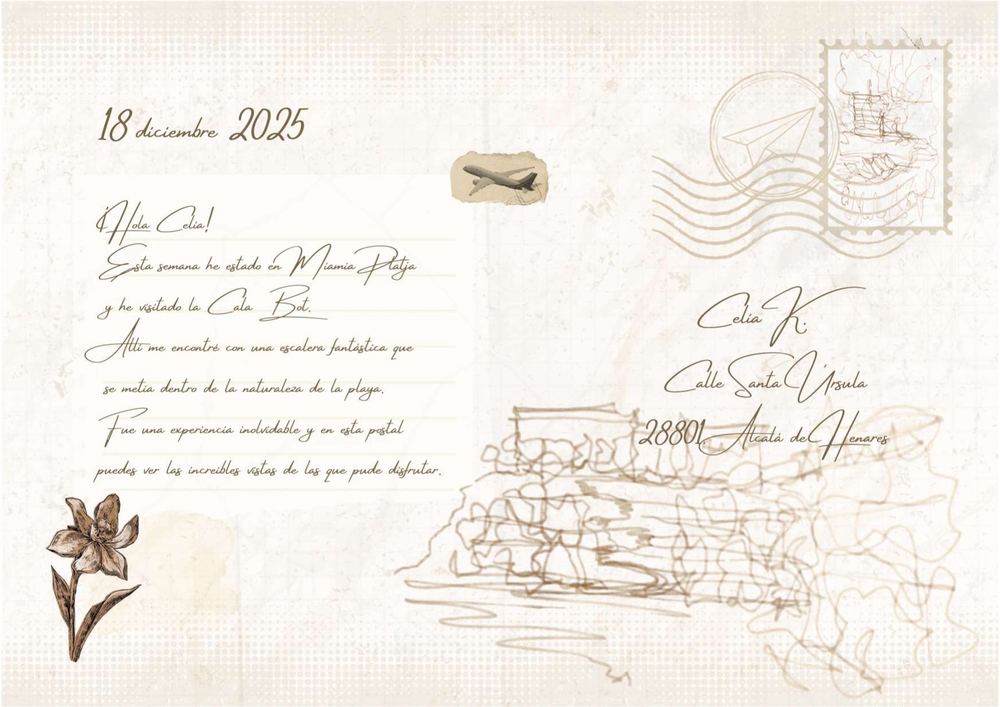 18 diciembre 2025
¡Hola Celia!
Esta semana he estado en Miamia Platja
y he visitado la Cala Bot.
Allí me encontré con una escalera fantástica que
se metia dentro de la naturaleza de la playa.
Fue una experiencia inolvidable y en esta postal
puedes ver las increibles vistas de las que pude disfrutar.
Celia K.
Calle Santa Ursula
28801, Alcalá de Henares